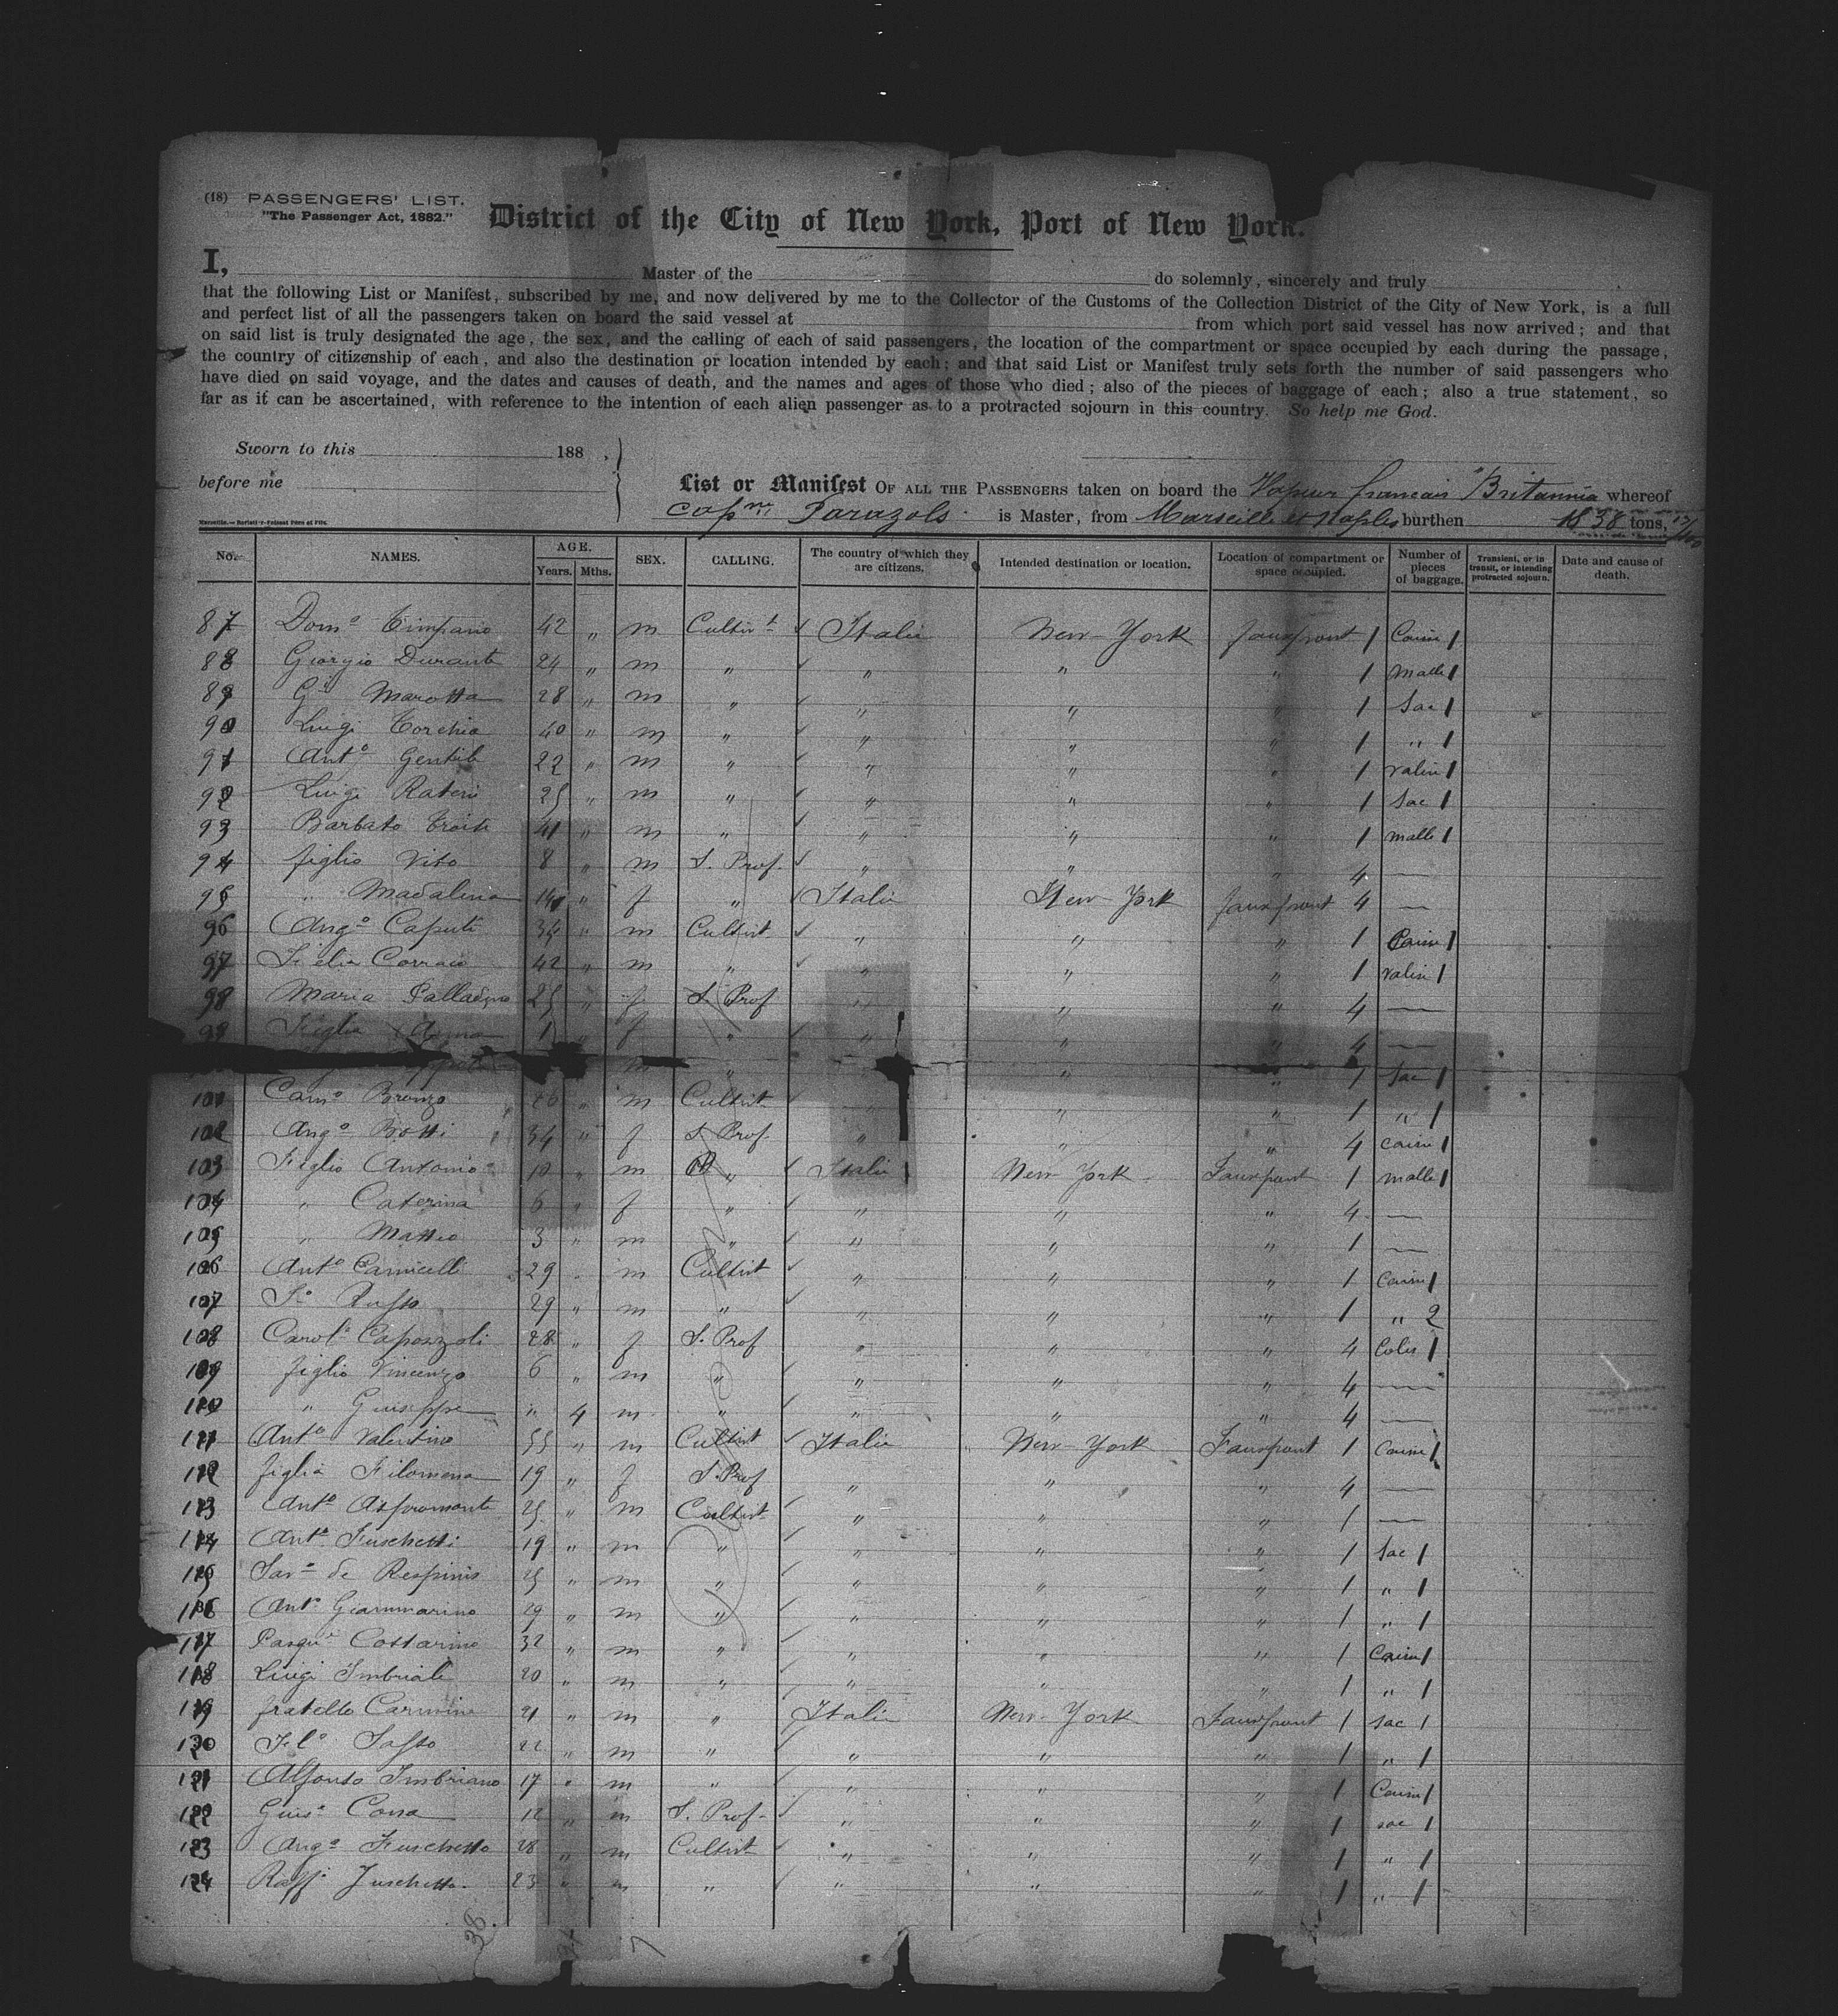 (18) PASSENGERS' LIST.
"The Passenger Act, 1882."
District of the City of New York, Port of New York.
I, Master of the do solemnly, sincerely and truly
that the following List or Manifest, subscribed by me, and now delivered by me to the Collector of the Customs of the Collection District of the City of New York, is a full
and perfect list of all the passengers taken on board the said vessel at from which port said vessel has now arrived; and that
on said list is truly designated the age, the sex, and the calling of each of said passengers, the location of the compartment or space occupied by each during the passage,
the country of citizenship of each, and also the destination or location intended by each; and that said List or Manifest truly sets forth the number of said passengers who
have died on said voyage, and the dates and causes of death, and the names and ages of those who died; also of the pieces of baggage of each; also a true statement, so
far as it can be ascertained, with reference to the intention of each alien passenger as to a protracted sojourn in this country. So help me God.
Sworn to this 188 ,
before me
List or Manifest OF ALL THE PASSENGERS taken on board the Vapeur francais "Britannia whereof
capne Parazols is Master, from Marseille et Naples burthen 1838 tons,
No. NAMES. AGE. Years. Mths. SEX. CALLING. The country of which they are citizens. Intended destination or location. Location of compartment or space occupied. Number of pieces of baggage. Transient, or in transit, or intending protracted sojourn. Date and cause of death.
87 Domo Timpano 42 " m Cultivt Italie New-York fauxpont 1 Caisse 1
88 Giorgio Durante 24 " m " " " " 1 malle 1
89 Marotta 28 " m " " " " 1 Sac 1
90 Luigi Torchia 40 " m " " " " 1 " 1
91 Anto Gentile 22 " m " " " " 1 valise 1
92 Luigi 25 " m " " " " 1 Sac 1
93 Barbato 41 " m " " " " 1 malle 1
94 figlio Vito 8 " m S. Prof. " " " 4 —
95 " Madalena 14 " f " Italie New-York fauxpont 4 —
96 Ango Caputi 34 " m Cultivt " " " 1 Caisse 1
97 42 " m " " " " 1 valise 1
98 Maria Palladino 25 " f S. Prof " " " 4 —
99 Figlia 1 " f " " " " 4 —
m " " " 1 Sac 1
101 Camo 26 " m Cultivt " " " 1 " 1
102 Ango Botti 34 " f S. Prof. " " " 4 caisse 1
103 Figlio Antonio 10 " m " Italie New-York Fauxpont 1 malle 1
104 " Caterina 6 " f " " " " 4 —
105 " Matteo 3 " m " " " " 1 —
106 Anto Carnicelli 29 " m Cultivt " " " 1 Caisse 1
107 Fo Russo 29 " m " " " " 1 " 2
108 Carola Capozzoli 28 " f S. Prof " " " 4 Colis 1
109 figlio Vincenzo 6 " m " " " " 4 —
110 " Giuseppe " 4 m " " " " 4 —
111 Anto Valentino 55 " m Cultivt Italie New-York Fauxpont 1 Caisse 1
112 figlia Filomena 19 " f S. Prof " " " 4 —
113 Anto Aspromonte 25 " m Cultivt " " " 1 —
114 Anto Fuschetti 19 " m " " " " 1 Sac 1
115 de Respinis 25 " m " " " " 1 " 1
116 Anto Giammarino 29 " m " " " " 1 " 1
117 Pasqu Cottarino 32 " m " " " " 1 Caisse 1
118 Luigi Imbriali 20 " m " " " " 1 " 1
119 fratello Carmine 21 " m " Italie New-York Fauxpont 1 sac 1
120 Sasso 22 " m " " " " 1 " 1
121 Alfonso Imbriano 17 " m " " " " 1 Caisse 1
122 Cona 12 " m S. Prof. " " " 1 sac 1
123 Ango Fuschetto 28 " m Cultivt " " " 1 " 1
124 Raff. Fuschetto 23 " m " " " " 1 " 1
38.